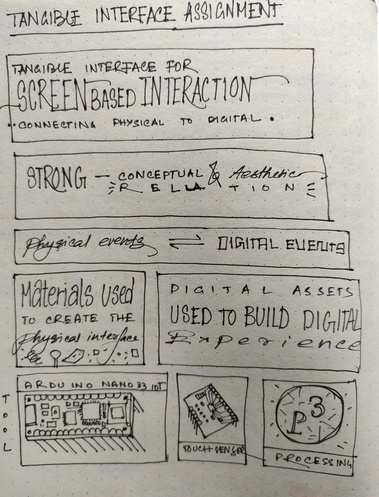 TANGIBLE INTERFACE ASSIGNMENT
TANGIBLE INTERFACE FOR
SCREEN BASED INTERACTION
CONNECTING PHYSICAL TO DIGITAL.
STRONG - CONCEPTUAL & Aesthetic
RELLATION
Physical events ⇌ DIGITAL EVENTS
Materials Used
TO CREATE THE
Physical interface
DIGITAL ASSETS
USED TO BUILD DIGITAL
Experience
TOOL
ARDUINO NANO 33 IOT
TOUCH SENSOR
P3
PROCESSING